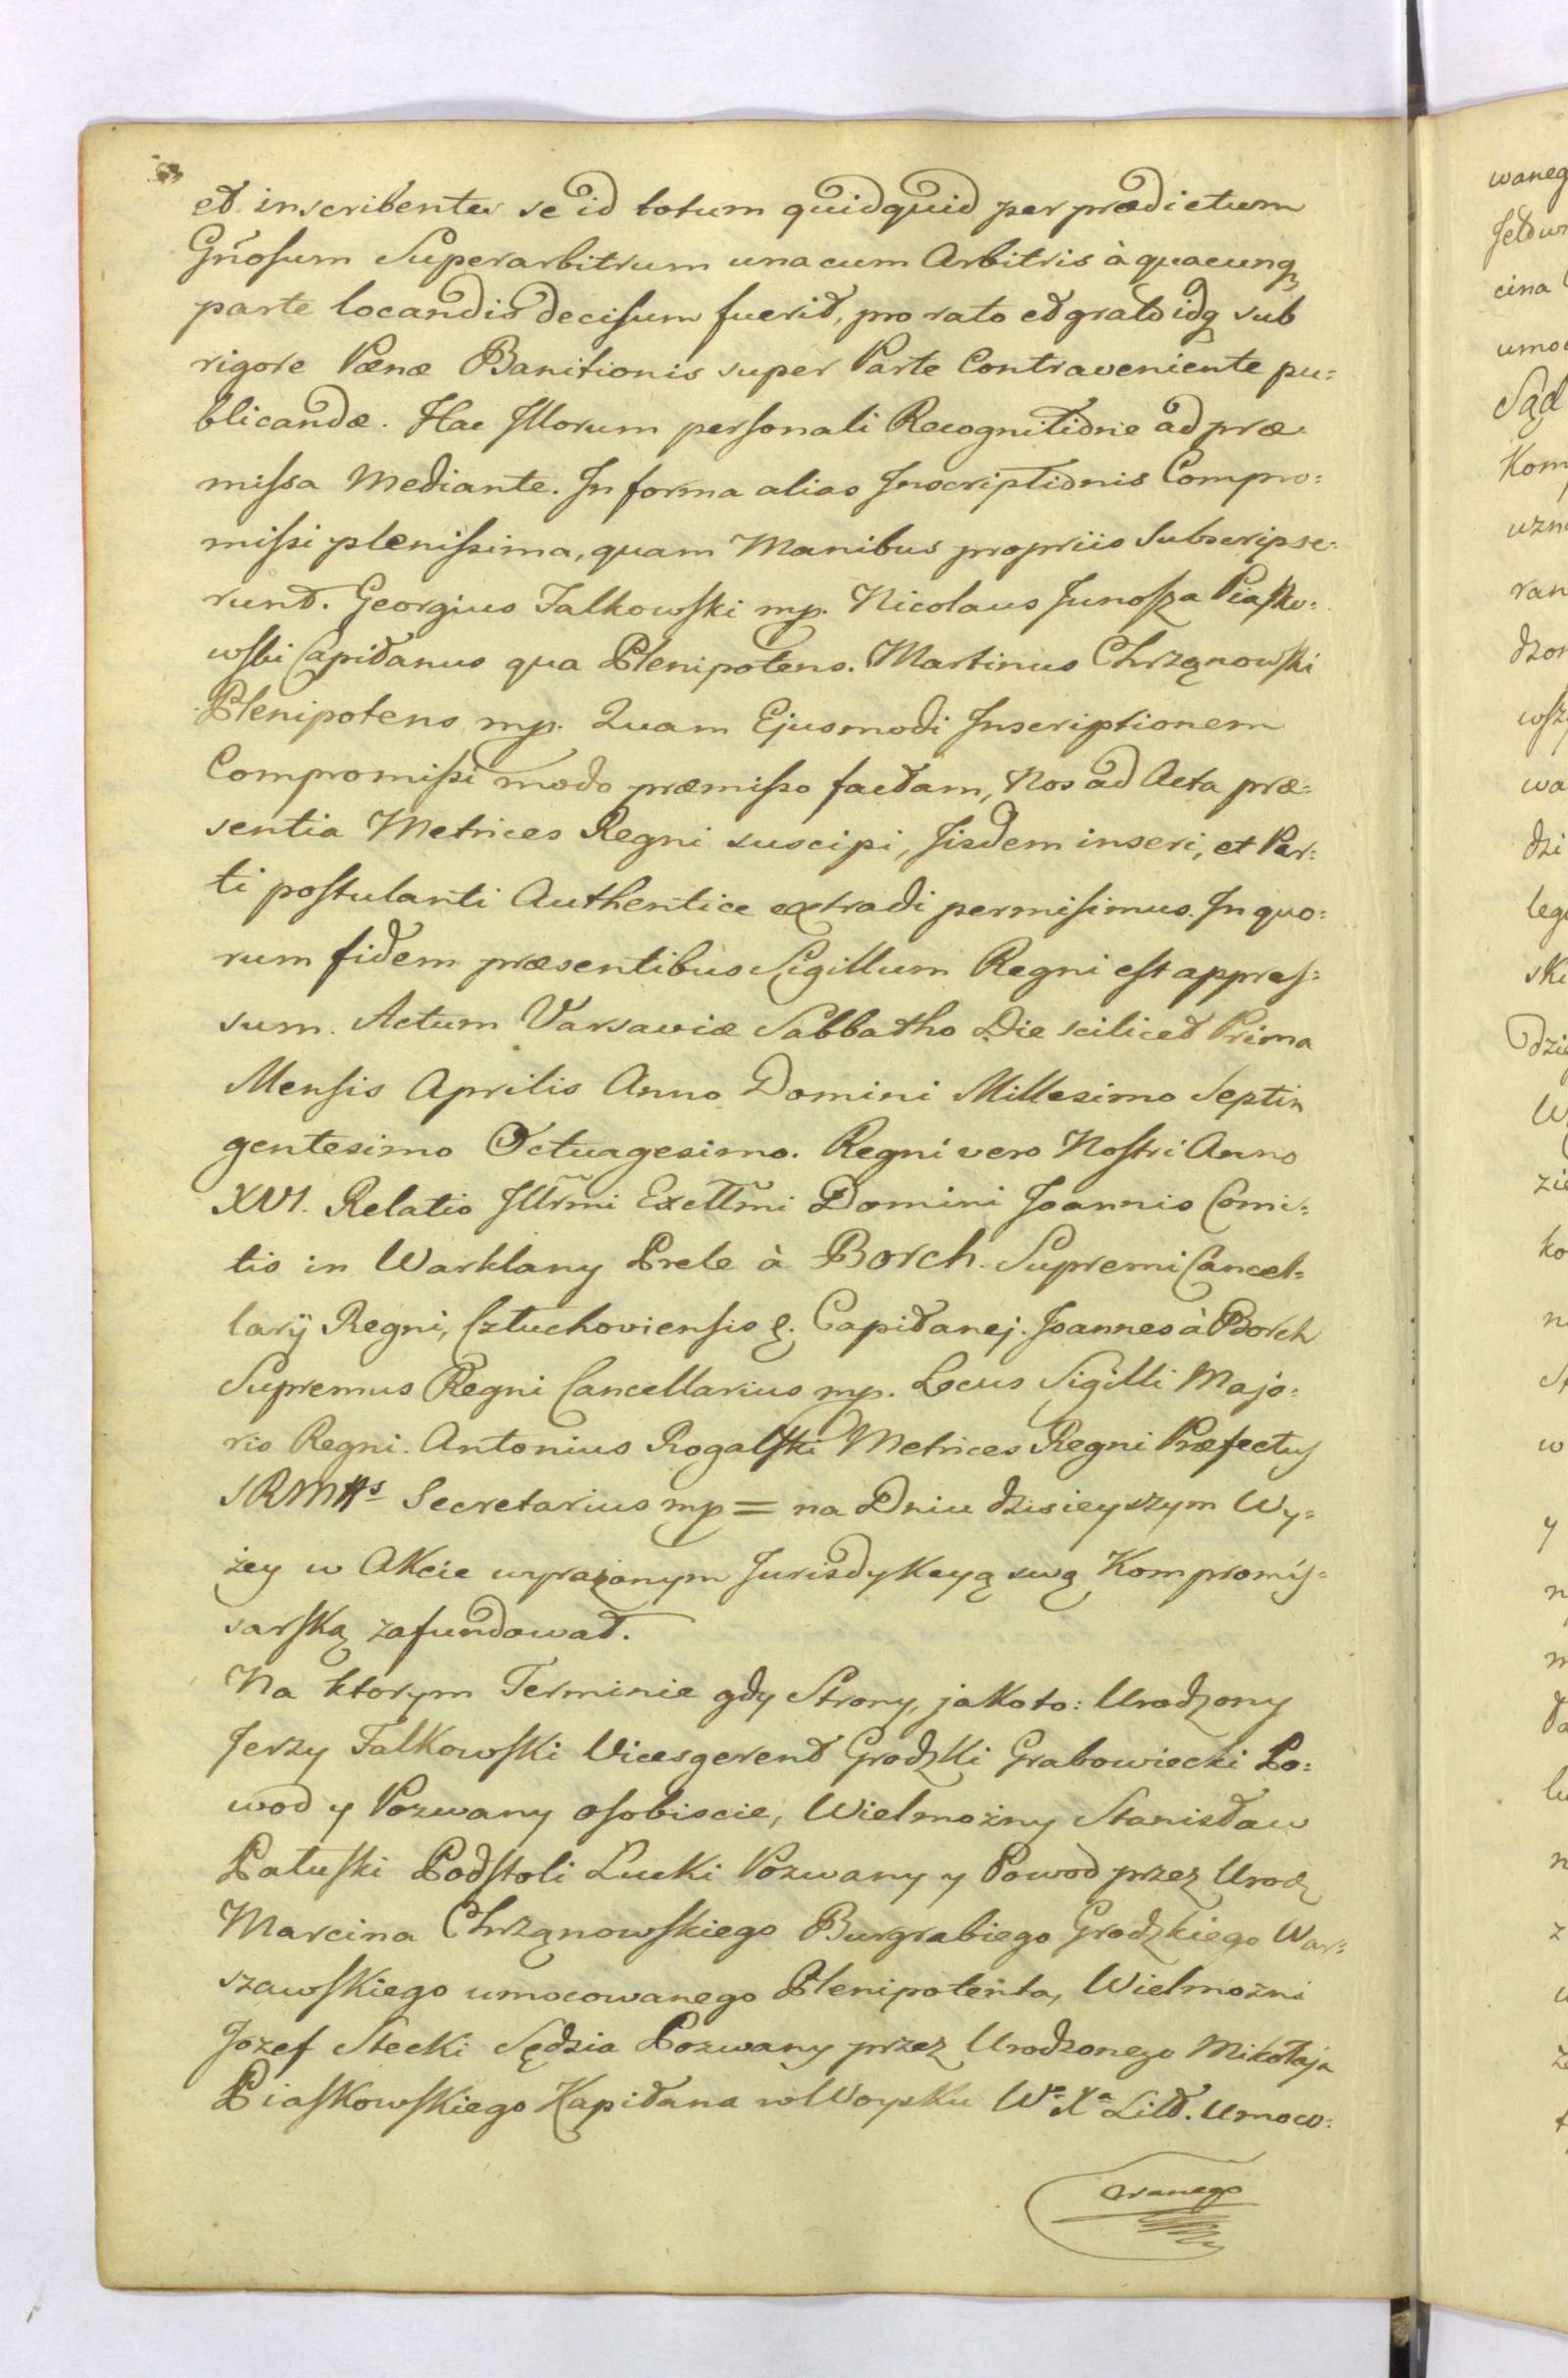 et inscribentes se id totum quidquid per prædictum
Gñosum Superarbitrum una cum Arbitris à quacunq
parte locandis decisum fuerit, pro rato et grato idq sub
rigore Pœnæ Banitionis super Parte Contraveniente pu=
blicandæ. Hac Illorum personali Recognitione ad præ=
missa Mediante. In forma alias Inscriptionis Compro=
missi plenissima, quam Manibus propriis Subscripse=
runt. Georgius Falkowski mp. Nicolaus Junosza Piasko=
wski Capitanus qua Plenipotens. Martinus Chrząnowski
Plenipotens mp. Quam Ejusmodi Inscriptionem
Compromissi modo præmisso factam, Nos ad Acta præ=
sentia Metrices Regni suscipi, Iisdem inseri, et Par=
ti postulanti Authentice extradi permisimus. In quo=
rum fidem præsentibus Sigillum Regni est appres=
sum. Actum Varsaviæ Sabbatho Die scilicet Prima
Mensis Aprilis Anno Domini Millesimo Septin
gentesimo Octuagesimo. Regni vero Nostri Anno
XVI. Relatio Illr̃mi Excellm̃i Domini Joannis Comi=
tis in Warklany Prele à Borch. Supremi Cancel=
larÿ Regni, Człuchoviensis &. Capitanej. Joannes à Borch
Supremus Regni Cancellarius mp. Locus Sigilli Majo=
ris Regni. Antonius Rogalski Metrices Regni Præfectus
SRMtts Secretarius mp = na Dniu dzisieyszym Wy=
żey w Akcie wyrażonym Jurisdykcyą swą Kompromis=
sarską zafundował.
Na ktorym Terminie gdy Strony, jako to: Urodzony
Jerzy Falkowski Vicesgerent Grodzki Grabowiecki Po=
wod y Pozwany osobiscie, Wielmożny Stanisław
Łatuski Podstoli Łucki Pozwany y Powod przez Urodz
Marcina Chrząnowskiego Burgrabiego Grodzkiego War=
szawskiego umocowanego Plenipotenta, Wielmożni
Jozef Stecki Sędzia Pozwany przez Urodzonego Mikołaja
Piaskowskiego Kapitana w Woysku Wo Xa Litt. Umoco=
wanego
waneg
cina
umo
Sąd
Kom
uzn
ran
dzon
wsz
wa
dzi
leg
ski
dzie
W
zie
ko
n
w
y
n
m
n
z